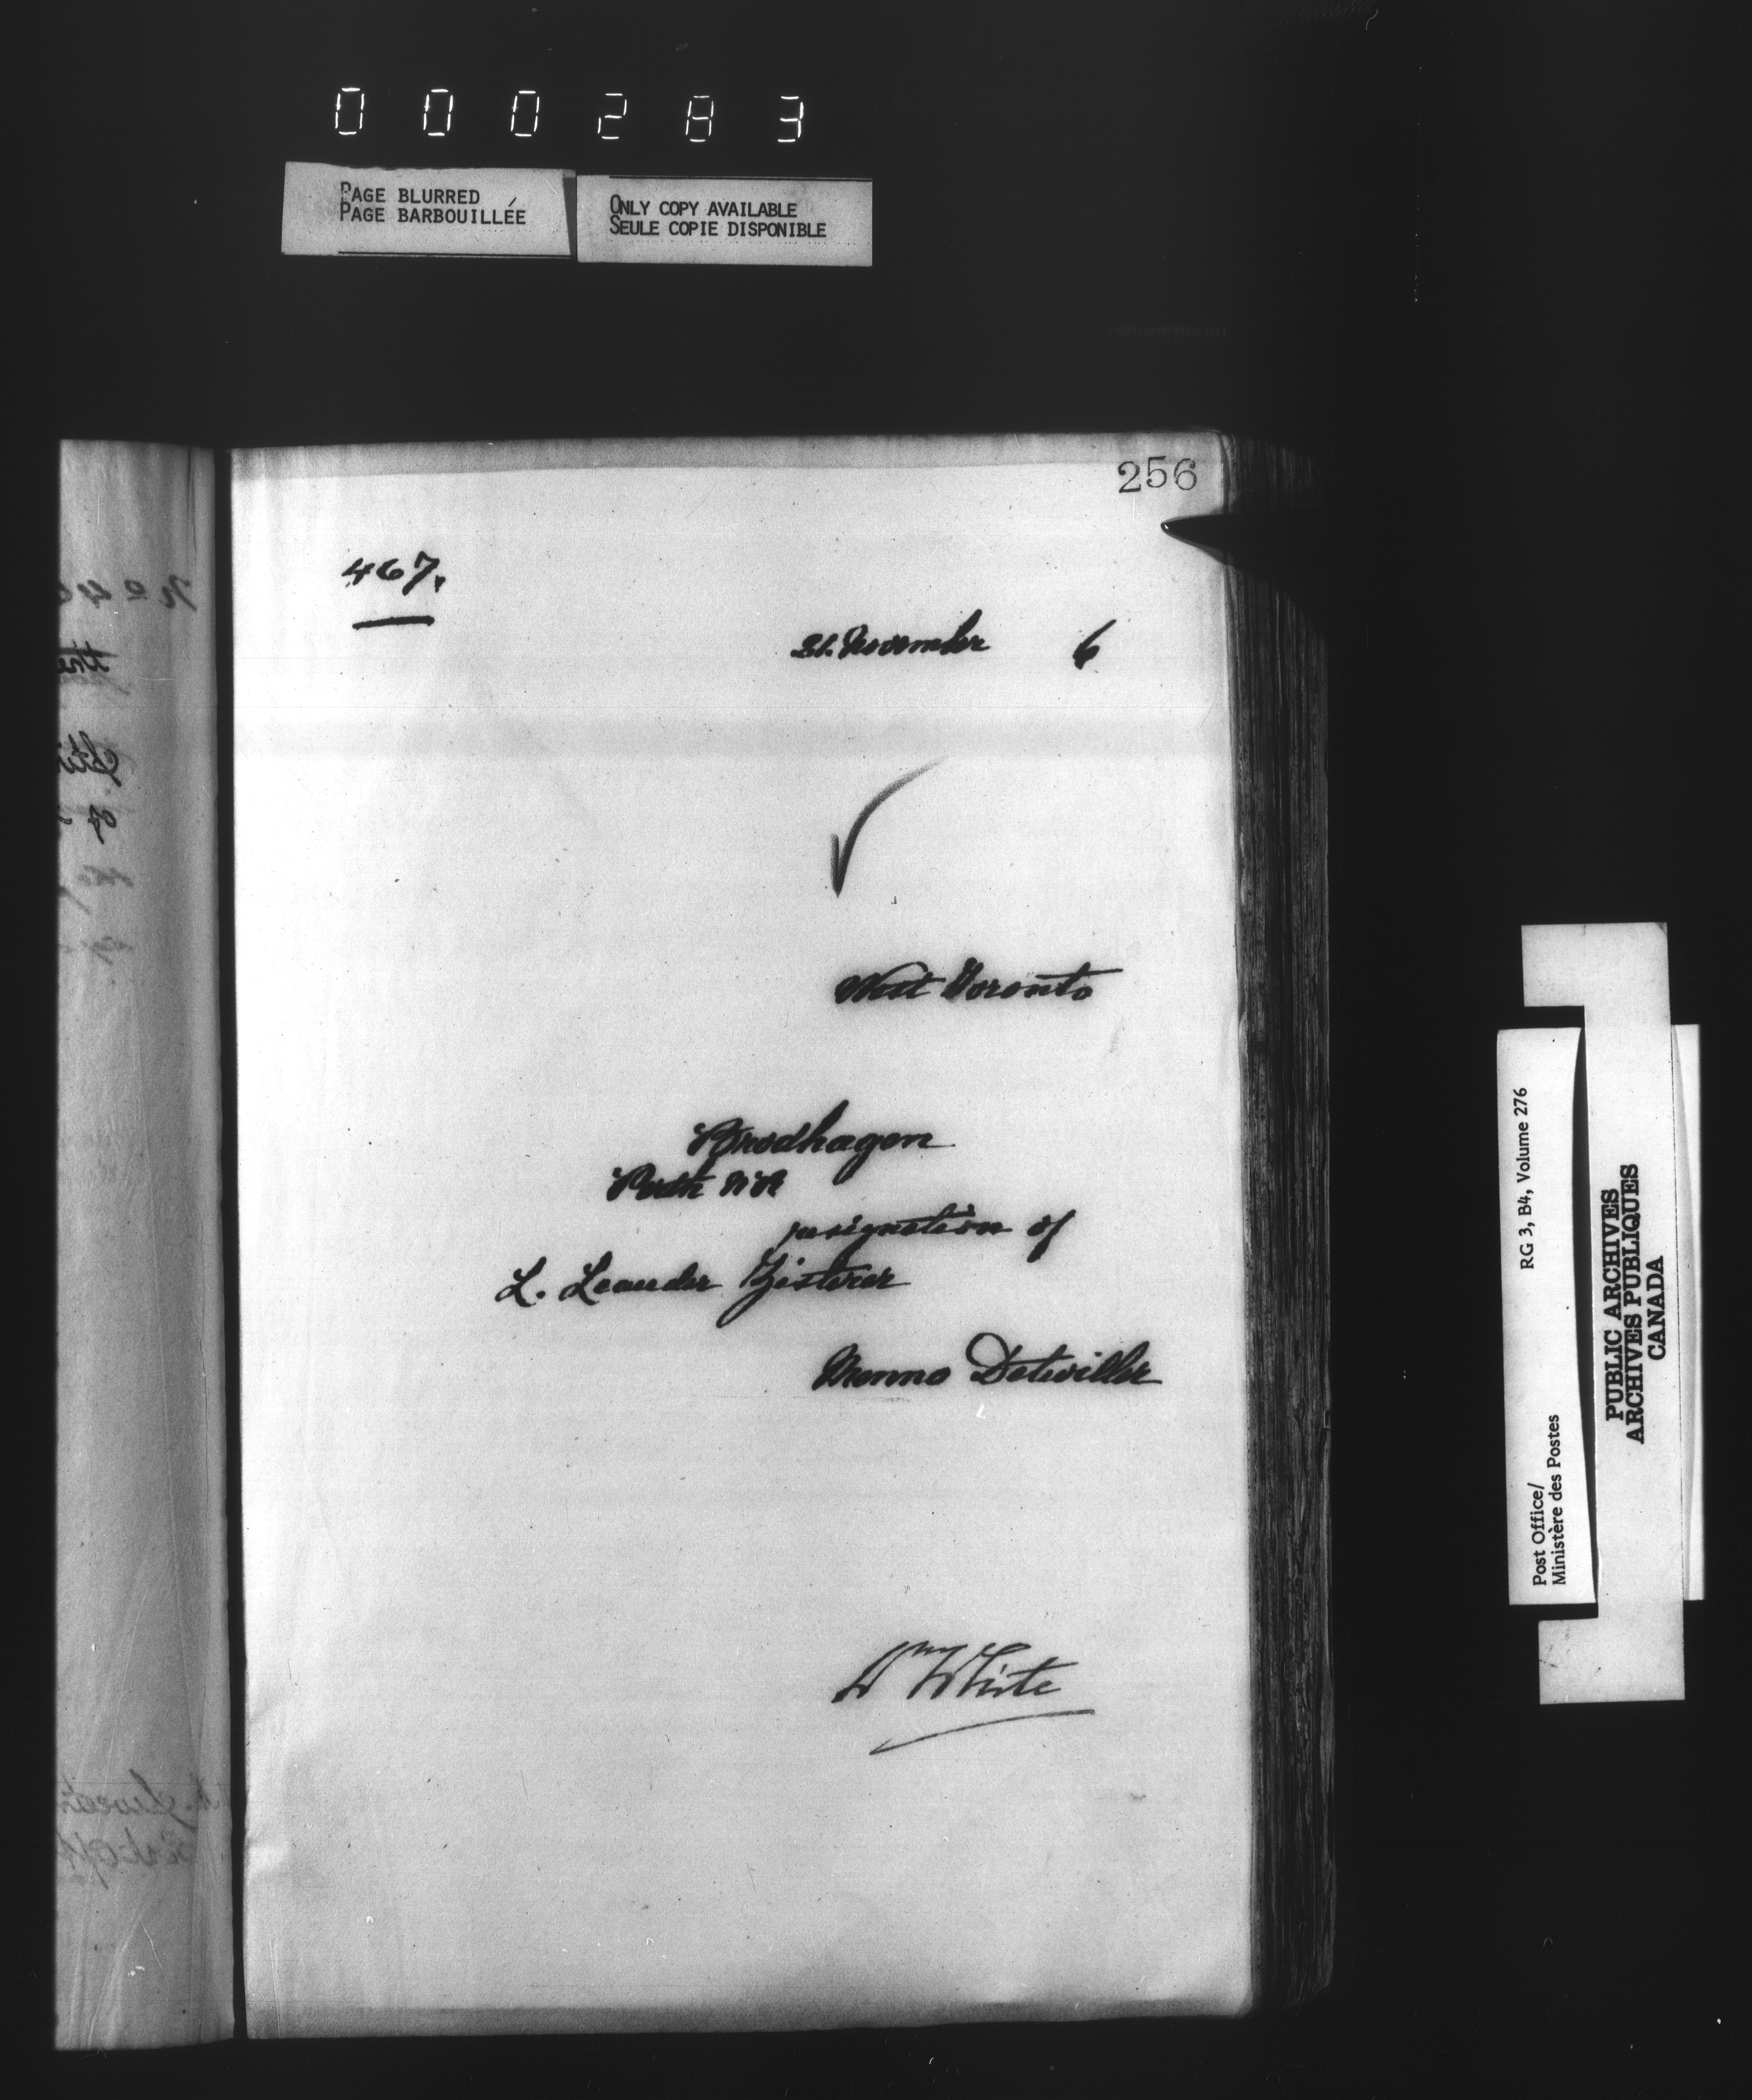 000283
PAGE BLURRED
PAGE BARBOUILLÉE
ONLY COPY AVAILABLE
SEULE COPIE DISPONIBLE
256
467.
21. November 6
West Toronto
Brodhagen
Perth N R
resignation of
L. Leander
Menno Detwiller
Wm White
RG 3, B4, Volume 276
Post Office/
Ministère des Postes
PUBLIC ARCHIVES
ARCHIVES PUBLIQUES
CANADA